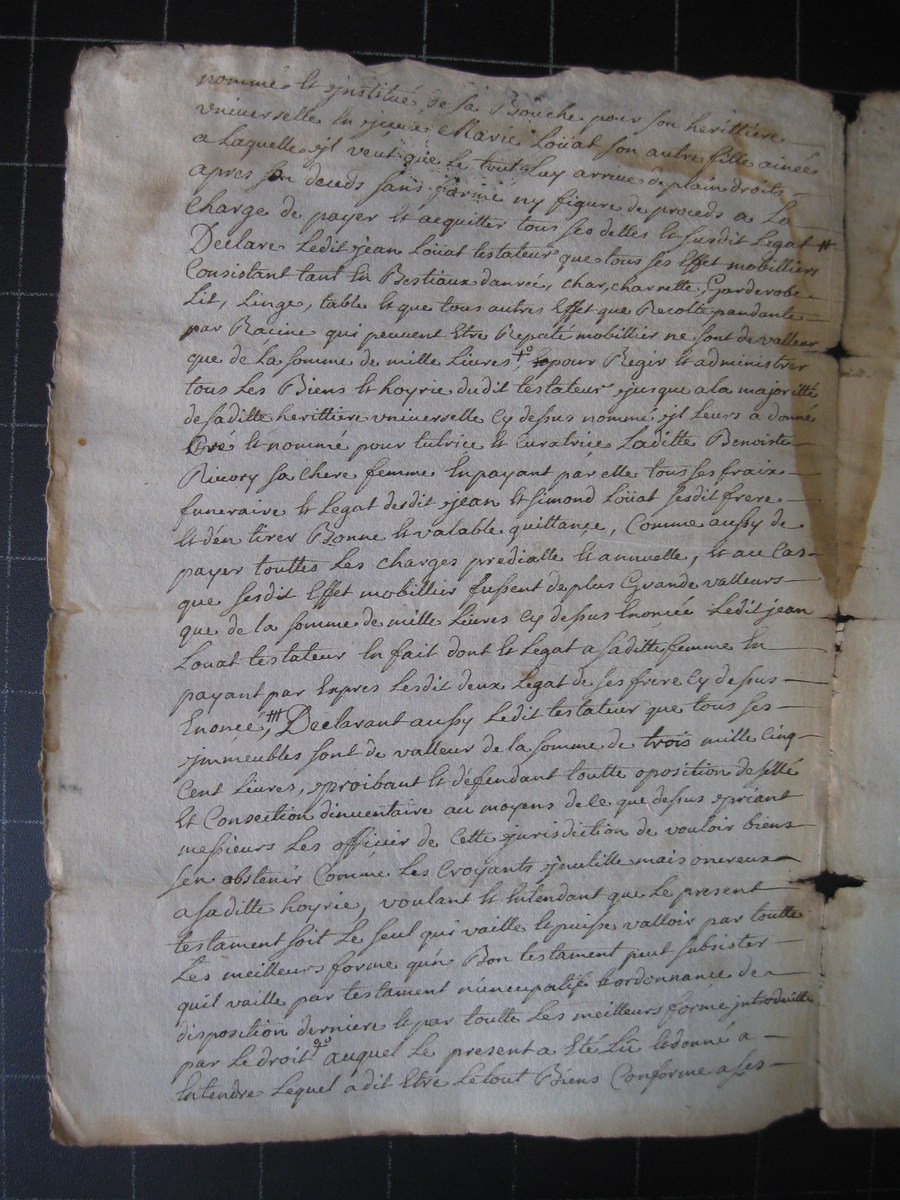 nommé et jnstitué de sa Bouche pour son herittiere
vniverselle en jceux Marie Loüat son autre fille ainée
a Laquelle jl veut que le tout Luy arrive de plain droits
apres son deceds sans forme ny figure de proceds a La
Charge de payer et acquitter tous ses dettes et susdit Legat #
Declare Ledit jean Loüat testateur que tous ses Effet mobilliers
Consistant tant En Bestiaux danrée, char, charrette, Garderobe
Lit, Linge, table et que tous autres Effet que Recolte pandante
par Racine qui peuvent Etre Reputé mobillier ne sont de valleur
que de la somme de mille Livres, pour Regir et administrer
tous Les Biens et hoyrie dudit testateur jusque a la majoritté
de saditte herittiere vniverselle Cy dessus nommé, jl Leurs a donné
Créé et nommé pour tutrice et Curatrice Laditte Benoiste
Rivory sa chere femme En payant par elle tous ses fraix
funeraire et Legat desdit jean et Simond Loüat sesdit frere
et d'en tirer Bonne et valable quittançe, Comme aussy de
payer touttes Les charges prédialle et annuelle, et au Cas
que sesdit Effet mobillier fussent de plus Grande valleurs
que de la somme de mille Livres Cy dessus Enoncée Ledit jean
Loüat testateur En fait dont et Legat a saditte femme En
payant par Enpres Lesdit deux Legat de ses frere Cy dessus
Enoncé ## Declarant aussy Ledit testateur que tous ses
jmmeubles sont de valleur de la somme de trois mille Cinq
Cent Livres, proibant et défendant toutte oposition de sellé
et Confection dinventaire au moyens de Ce que dessus priant
messieurs Les officier de Cette jurisdiction de vouloir biens
sen obstenir Comme Les Croyants jnutille mais onereux
a saditte hoyrie, voulant et Entendant que Le present
testament soit Le seul qui vaille et puisse valloir par toutte
Les meilleurs forme qu'un Bon testament peut subsister
quil vaille par testament nuncupatif et ordonnance de
disposition derniere et par toutte Les meilleurs forme jntroduitte
par Le droit auquel Le present a Eté Lû et donné a
Entendre Lequel a dit Etre Le tout Biens Conforme a ses